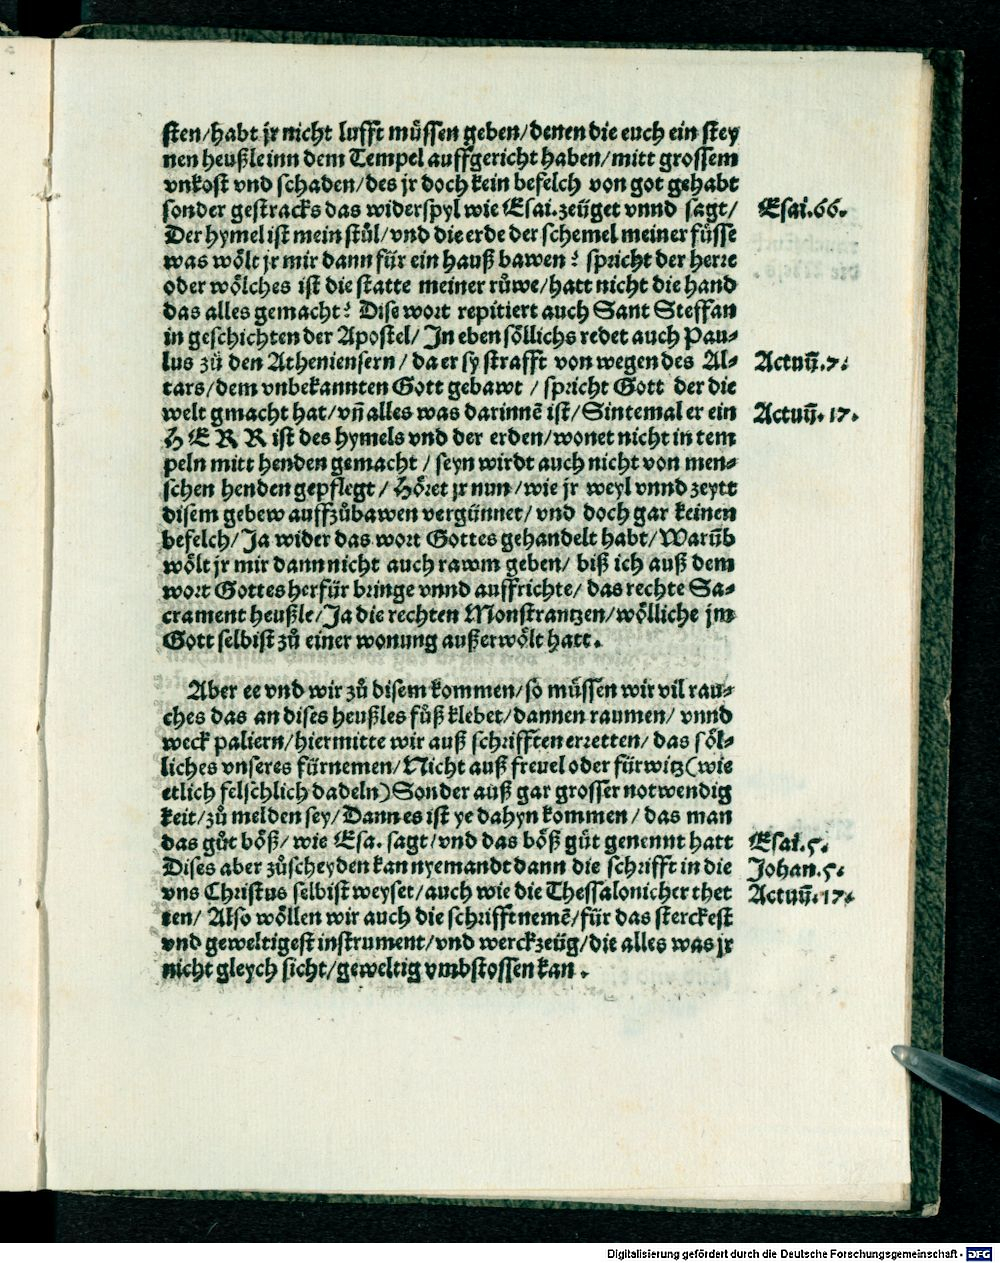 sten/habt jr nicht lufft müssen geben/denen die euch ein stey
nen heußle inn dem Tempel auffgericht haben/mitt grossem
vnkost vnd schaden/des jr doch kein befelch von got gehabt
sonder gestracks das widerspyl wie Esai.zeüget vnnd sagt/
Esai.66.
Der hymel ist mein stůl/vnd die erde der schemel meiner füsse
was wölt jr mir dann für ein hauß bawen? spricht der herre
oder wölches ist die statte meiner růwe/hatt nicht die hand
das alles gemacht? Dise wort repitiert auch Sant Steffan
in geschichten der Apostel/In eben söllichs redet auch Pau-
lus zů den Atheniensern/da er sy strafft von wegen des Al-
Actuū.7.
tars/dem vnbekannten Gott gebawt/spricht Gott der die
welt gmacht hat/vñ alles was darinnē ist/Sintemal er ein
Actuū.17.
HERR ist des hymels vnd der erden/wonet nicht in tem
peln mitt henden gemacht/seyn wirdt auch nicht von men-
schen henden gepflegt/Höret jr nun/wie jr weyl vnnd zeytt
disem gebew auffzůbawen vergünnet/vnd doch gar keinen
befelch/Ja wider das wort Gottes gehandelt habt/Warūb
wölt jr mir dann nicht auch rawm geben/biß ich auß dem
wort Gottes herfür bringe vnnd auffrichte/das rechte Sa-
crament heußle/Ja die rechten Monstrantzen/wölliche jm
Gott selbist zů einer wonung außerwölt hatt.
Aber ee vnd wir zů disem kommen/so müssen wir vil rau-
ches das an dises heußles fůß klebet/dannen raumen/vnnd
weck paliern/hiermitte wir auß schrifften erretten/das söl-
liches vnseres fürnemen/Nicht auß freuel oder fürwitz(wie
etlich felschlich dadeln)Sonder auß gar grosser notwendig
keit/zů melden sey/Dann es ist ye dahyn kommen/das man
das gůt böß/wie Esa. sagt/vnd das böß gůt genennt hatt
Esai.5.
Dises aber zůscheyden kan nyemandt dann die schrifft in die
Johan.5.
vns Christus selbist weyset/auch wie die Thessalonicher thet
Actuū.17.
ten/Also wöllen wir auch die schrifft nemē/für das sterckest
vnd geweltigest instrument/vnd werckzeüg/die alles was jr
nicht gleych sicht/geweltig vmbstossen kan.
Digitalisierung gefördert durch die Deutsche Forschungsgemeinschaft - DFG